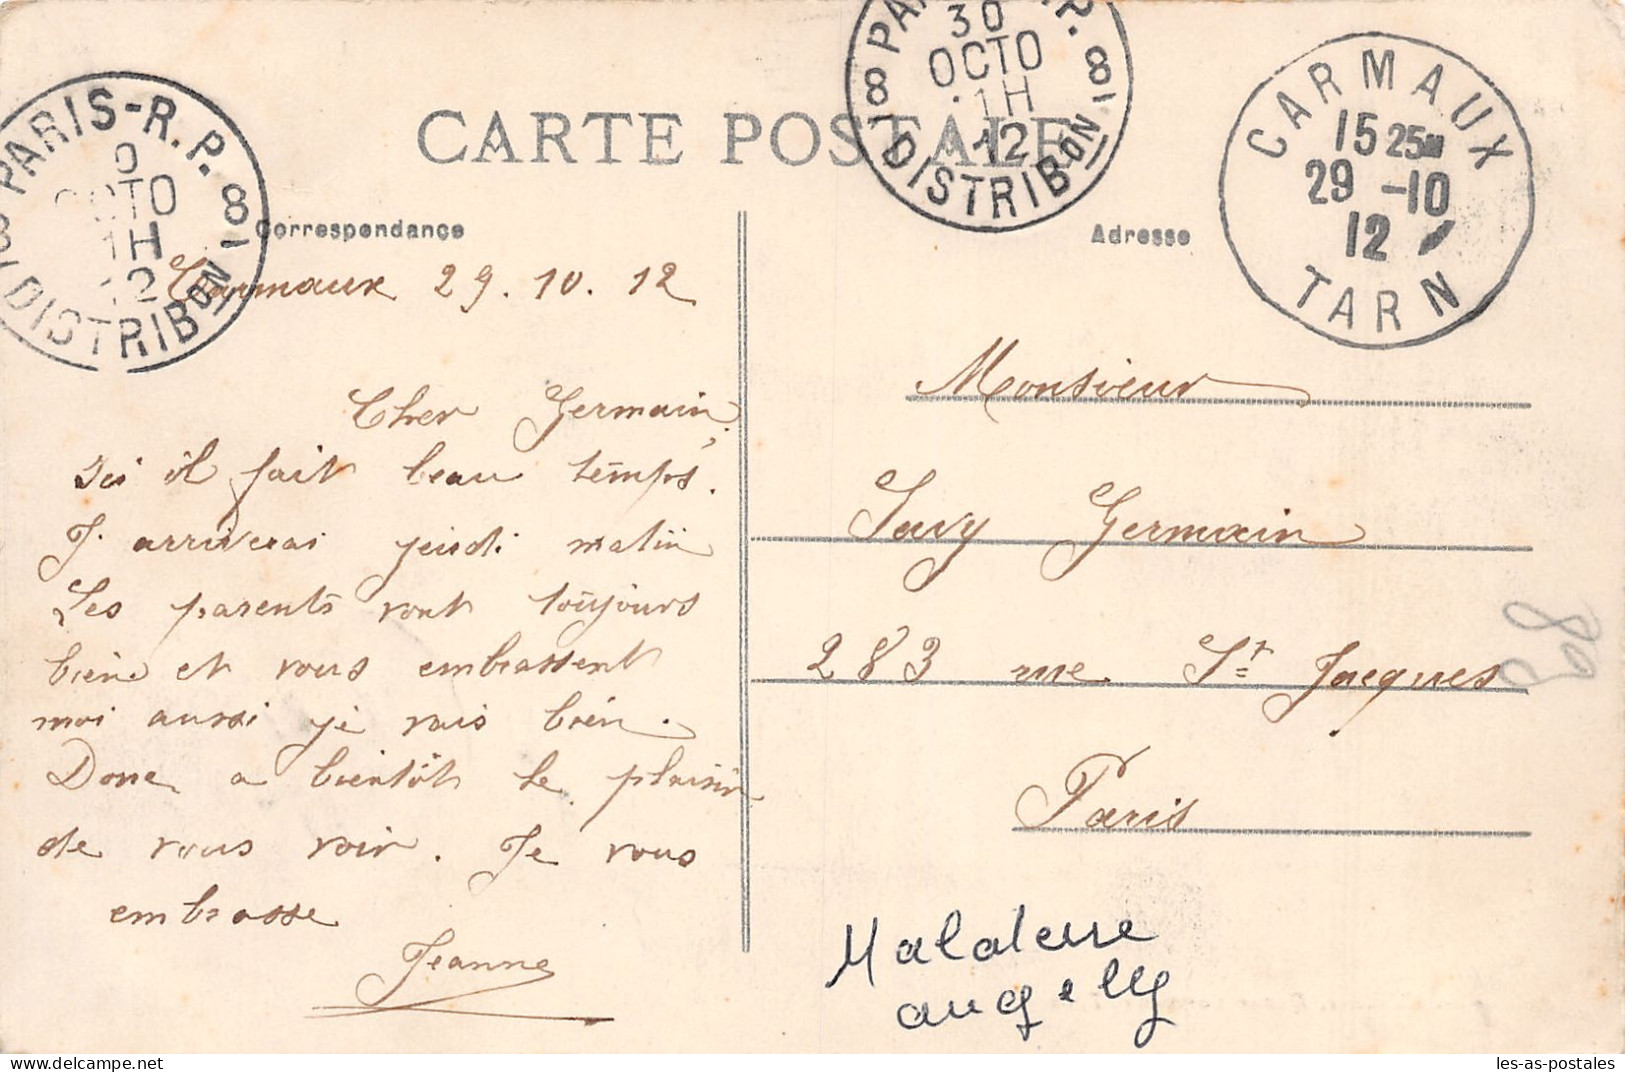 PARIS-R.P. 8
0
OCTO
1H
12
8 DISTRIBON
PARIS R.P. 8
30
OCTO
1H
12
8 DISTRIBON
CARMAUX
15 25M
29 -10
12
TARN
CARTE POSTALE
Correspondance
Adresse
Carmaux 29.10.12
Cher Germain
Ici il fait beau temps.
J. arriverai jeudi matin
Les parents vont toujours
bien et vous embrassent
moi aussi je vais bien.
Donc a bientôt le plaisir
de vous voir. Je vous
embrasse
Jeanne
Monsieur
Savy Germain
283 rue St Jacques
Paris
809
les-as-postales